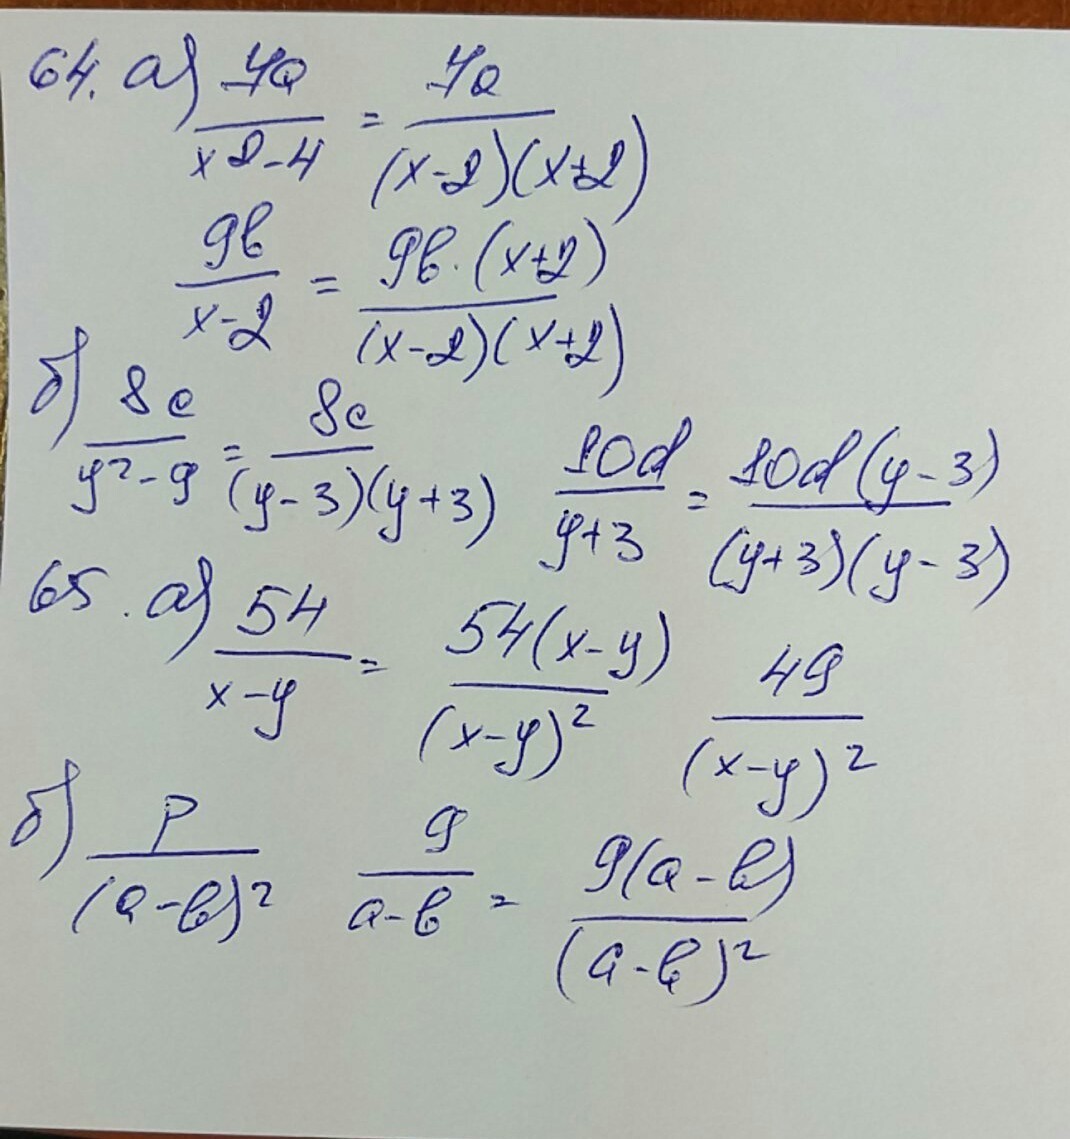 64. а) 7a/(x²-4) = 7a/((x-2)(x+2))
9b/(x-2) = 9b·(x+2)/((x-2)(x+2))
б) 8c/(y²-9) = 8c/((y-3)(y+3)) 10d/(y+3) = 10d(y-3)/((y+3)(y-3))
65. а) 54/(x-y) = 54(x-y)/(x-y)² 49/(x-y)²
б) p/(a-b)² 9/(a-b) = 9(a-b)/(a-b)²